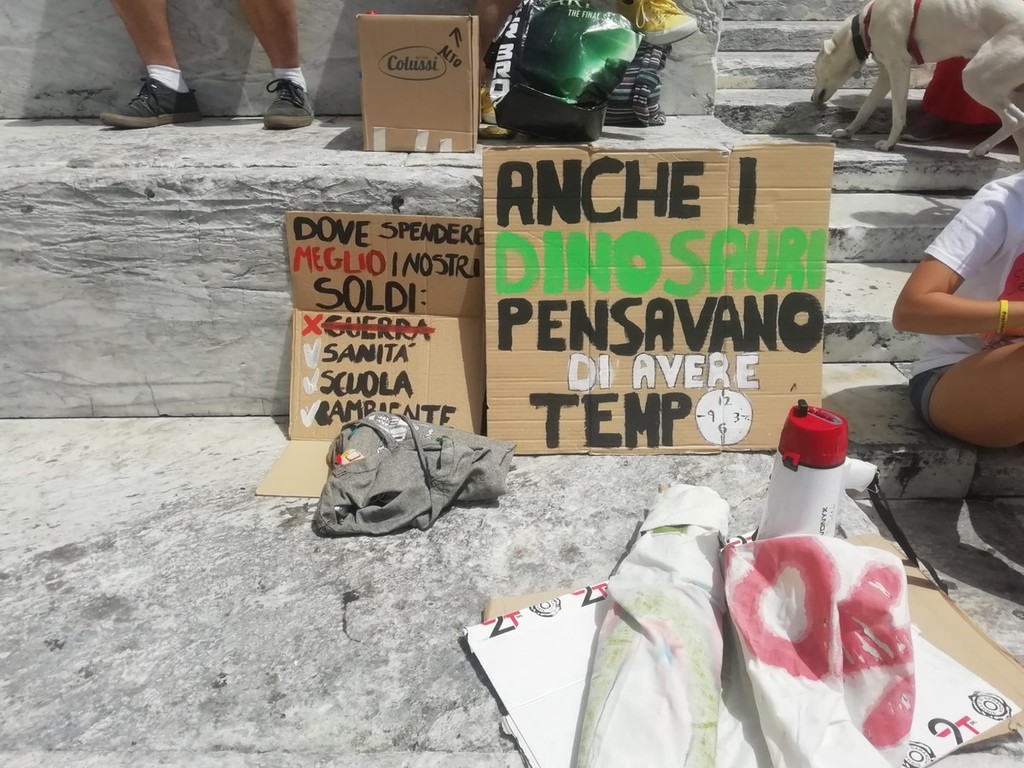 Colussi
ALTO
THE FINAL
DOVE SPENDERE
MEGLIO I NOSTRI
SOLDI:
GUERRA
SANITÀ
SCUOLA
AMBIENTE
ANCHE I
DINOSAURI
PENSAVANO
DI AVERE
TEMPO
12
9 3
6